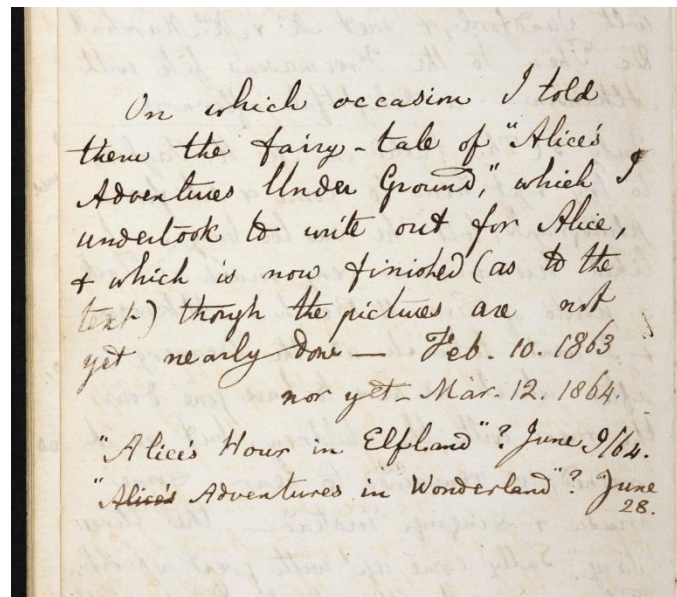 On which occasion I told
them the fairy-tale of "Alice's
Adventures Under Ground," which I
undertook to write out for Alice,
& which is now finished (as to the
text) though the pictures are not
yet nearly done — Feb. 10. 1863
nor yet - Mar. 12. 1864.
"Alice's Hour in Elfland"? June 9/64.
"Alice's Adventures in Wonderland"? June
28.